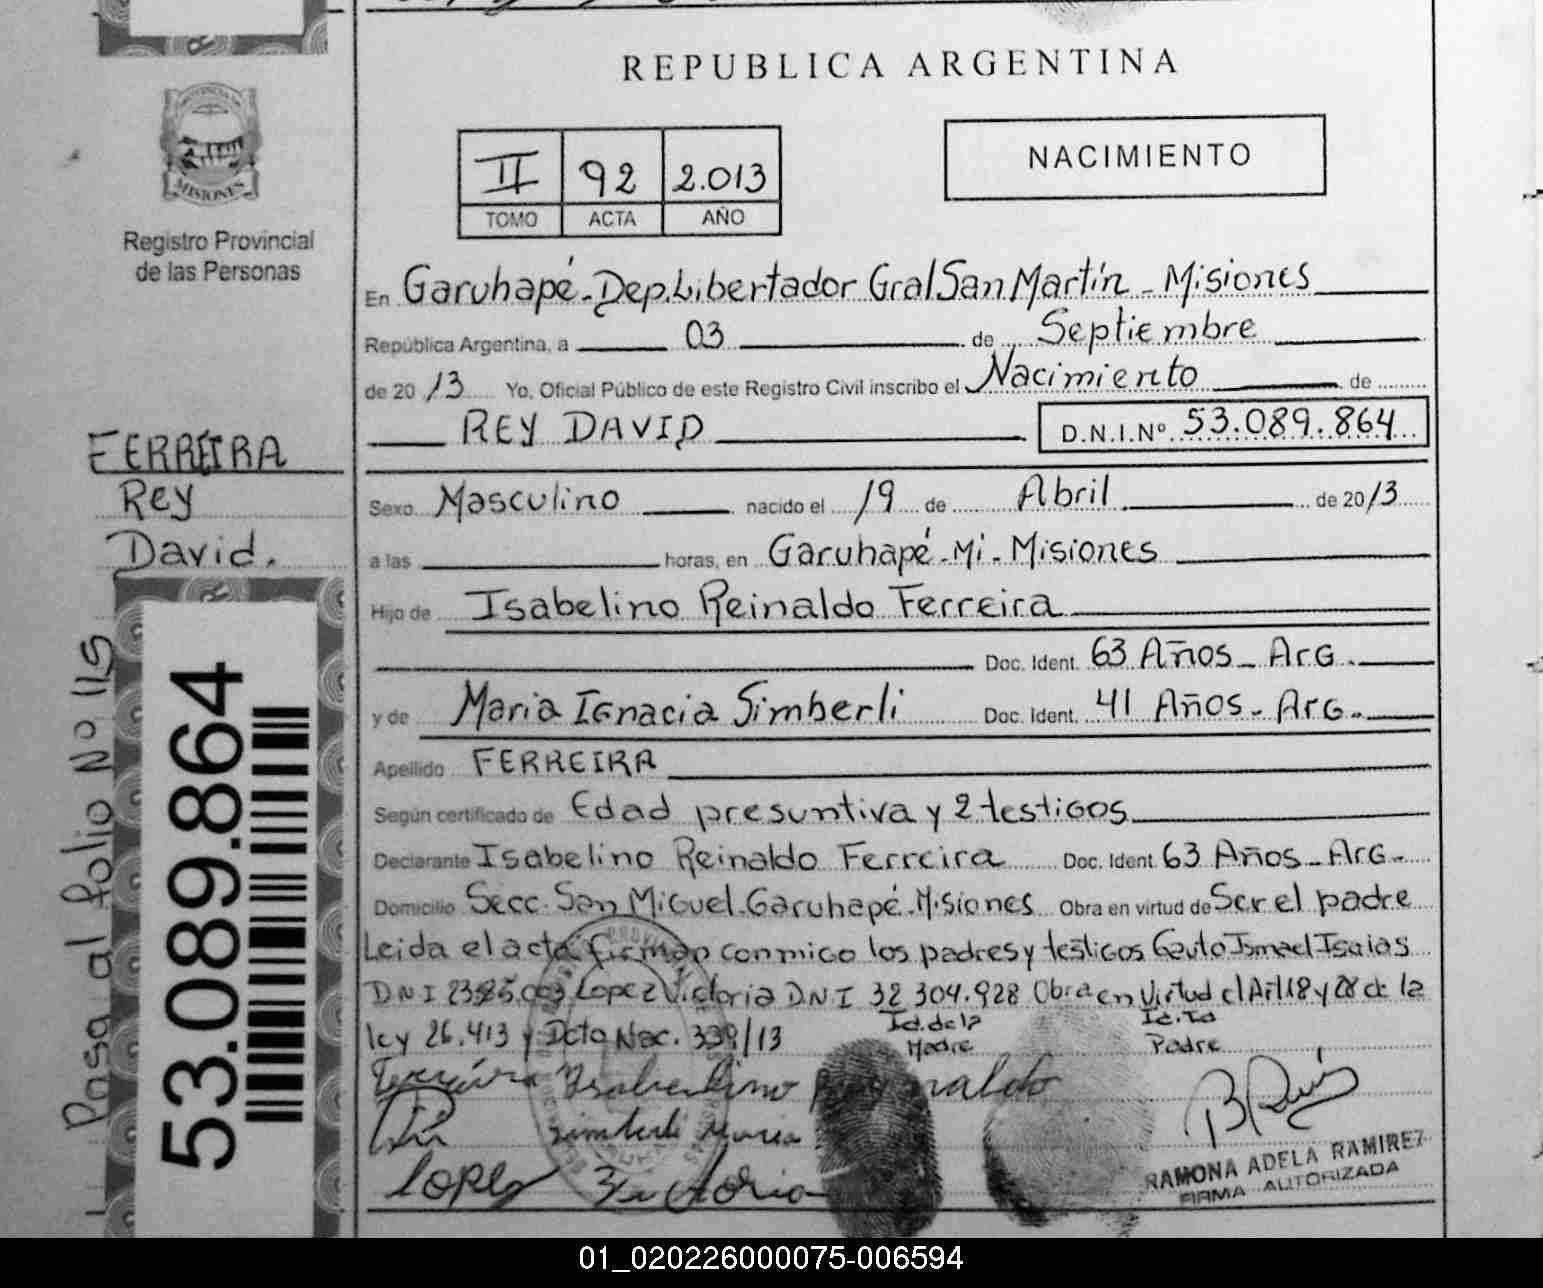 REPUBLICA ARGENTINA
MISIONES
Registro Provincial
de las Personas
II 92 2.013
TOMO ACTA AÑO
NACIMIENTO
En Garuhapé-Dep.Libertador Gral San Martín - Misiones
República Argentina, a 03 de Septiembre
de 20 13 Yo, Oficial Público de este Registro Civil inscribo el Nacimiento de
REY DAVID D.N.I.Nº 53.089.864
FERREIRA
Rey
David.
Sexo Masculino nacido el 19 de Abril de 20 13
a las horas, en Garuhapé-Mi-Misiones
Hijo de Isabelino Reinaldo Ferreira
Doc. Ident. 63 Años - Arg.
y de Maria Ignacia Simberli Doc. Ident. 41 Años - Arg.
Apellido FERREIRA
Según certificado de Edad presuntiva y 2 testigos
Declarante Isabelino Reinaldo Ferreira Doc. Ident. 63 Años - Arg.
Domicilio Secc. San Miguel. Garuhapé. Misiones Obra en virtud de Ser el padre
Leida el acta firman conmigo los padres y testigos Ismael Isaias
DNI Lopez Victoria DNI 32 304.928 Obra en Virtud de la
ley 26.413 y Dcto Nac. 339/13
Id. de la
Madre
Id. Id
Padre
Ferreira Isabelino Reynaldo
Simberli Maria
Lopez Victoria
RAMONA ADELA RAMIREZ
FIRMA AUTORIZADA
Pasa al folio Nº 115
53.089.864
01_020226000075-006594